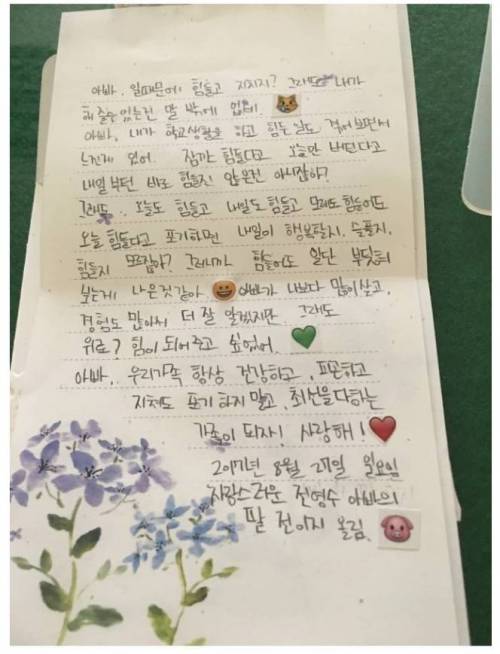 아빠, 일때문에 힘들고 지치지? 그래도 내가
해줄수 있는건 말 밖에 없네
아빠, 내가 학교생활을 하고 힘든 날도 겪어 보면서
느낀게 있어. 잠깐 힘들다고 오늘만 버틴다고
내일부턴 바로 힘들진 않은건 아니잖아?
그래도, 오늘도 힘들고 내일도 힘들고 모레도 힘들어도
오늘 힘들다고 포기하면 내일이 행복할지, 슬플지,
힘들지 모르잖아? 그러니까 힘들어도 일단 부딪혀
보는게 나은것 같아. 아빠가 나보다 많이 살고,
경험도 많아서 더 잘 알겠지만 그래도
위로? 힘이 되어 주고 싶었어.
아빠, 우리가족 항상 건강하고, 피곤하고
지쳐도 포기 하지 말고, 최선을 다하는
가족이 되자! 사랑해!
2017년 8월 27일 일요일
자랑스러운 전영수 아빠의
딸 전이지 올림.